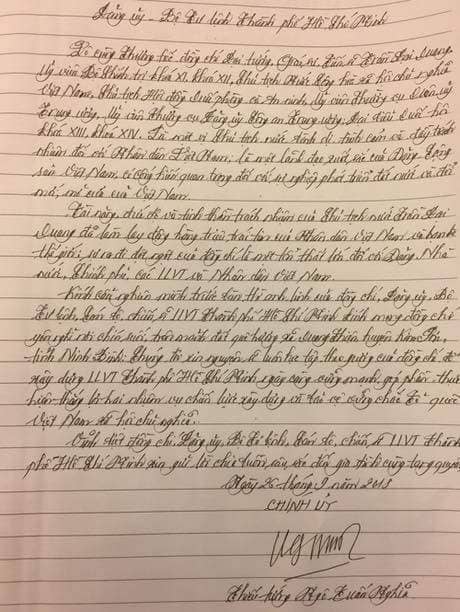 Đảng ủy - Bộ Tư lệnh Thành phố Hồ Chí Minh
Vô cùng thương tiếc đồng chí Đại tướng, Giáo sư, Tiến sĩ Trần Đại Quang,
Ủy viên Bộ Chính trị khóa XI, khóa XII, Chủ tịch nước Cộng hòa xã hội chủ nghĩa
Việt Nam, Chủ tịch Hội đồng Quốc phòng và An ninh, Ủy viên Thường vụ Quân ủy
Trung ương, Ủy viên Thường vụ Đảng ủy Công an Trung ương, Đại biểu Quốc hội
khóa XIII, khóa XIV. Là một vị Chủ tịch nước đánh dị tình cảm và đầy trách
nhiệm đối với Nhân dân Việt Nam, là một lãnh đạo xuất sắc của Đảng Cộng
sản Việt Nam, có cống hiến quan trọng đối với sự nghiệp phát triển đất nước và đổi
mới, mở cửa của Việt Nam.
Tài năng, chủ đề và tinh thần trách nhiệm của Chủ tịch nước Trần Đại
Quang đã làm lay động hàng triệu trái tim của Nhân dân Việt Nam và bạn bè
thế giới; sự ra đi đột ngột của đồng chí là một tổn thất lớn đối với Đảng, Nhà
nước, Chính phủ, các LLVT và Nhân dân Việt Nam.
Kính cẩn nghiêng mình trước bàn thờ anh linh của đồng chí, Đảng ủy, Bộ
Tư lệnh, cán bộ, chiến sĩ LLVT Thành phố Hồ Chí Minh kính mong đồng chí
yên nghỉ nơi chín suối trên mảnh đất quê hương xã Quang Thiện, huyện Kim Sơn,
tỉnh Ninh Bình. Chúng tôi xin nguyện sẽ luôn học tập theo gương của đồng chí để
xây dựng LLVT Thành phố Hồ Chí Minh ngày càng vững mạnh, góp phần thực
hiện thắng lợi hai nhiệm vụ chiến lược xây dựng và bảo vệ vững chắc Tổ quốc
Việt Nam xã hội chủ nghĩa.
Vĩnh biệt đồng chí, Đảng ủy, Bộ Tư lệnh, cán bộ, chiến sĩ LLVT Thành
phố Hồ Chí Minh xin gửi lời chia buồn sâu sắc đến gia đình cùng tang quyến.
Ngày 26 tháng 9 năm 2018
CHÍNH ỦY
Thiếu tướng Ngô Tuấn Nghĩa